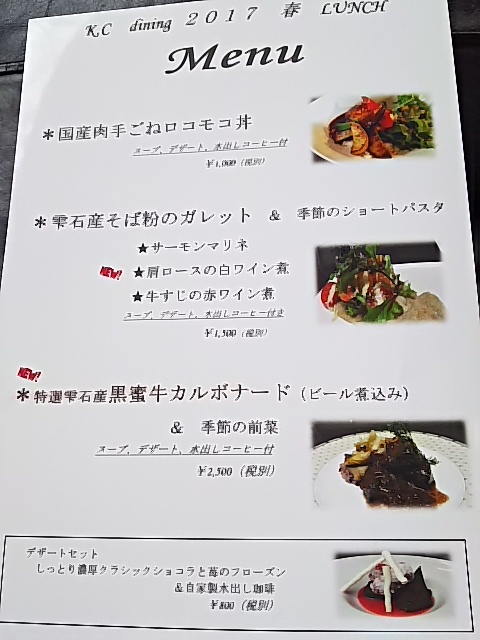 K,C dining 2017 春 LUNCH
Menu
＊国産肉手ごねロコモコ丼
スープ、デザート、水出しコーヒー付
￥1,000（税別）
＊雫石産そば粉のガレット ＆ 季節のショートパスタ
★サーモンマリネ
NEW! ★肩ロースの白ワイン煮
★牛すじの赤ワイン煮
スープ、デザート、水出しコーヒー付き
￥1,500（税別）
NEW!
＊特選雫石産黒蜜牛カルボナード（ビール煮込み）
＆ 季節の前菜
スープ、デザート、水出しコーヒー付
￥2,500（税別）
デザートセット
しっとり濃厚クラシックショコラと苺のフローズン
＆自家製水出し珈琲
￥800（税別）